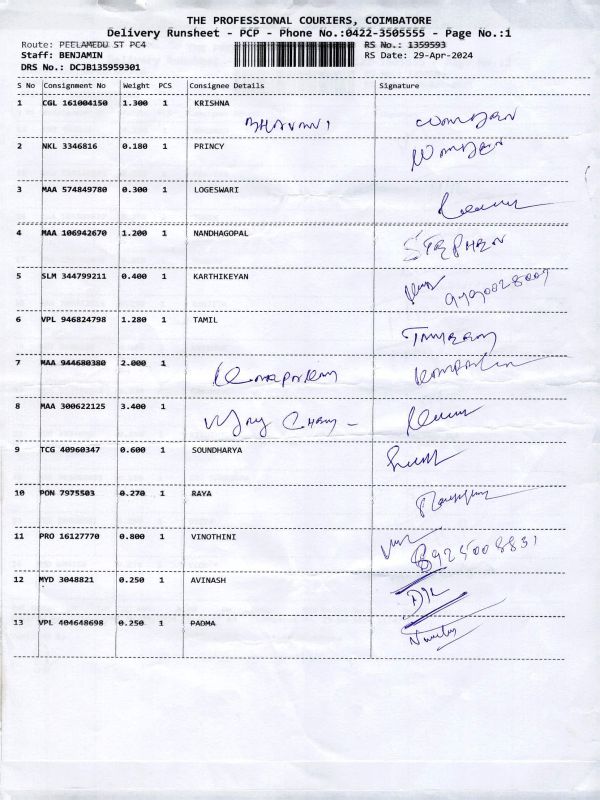 THE PROFESSIONAL COURIERS, COIMBATORE
Delivery Runsheet - PCP - Phone No.:0422-3505555 - Page No.:1
Route: PEELAMEDU ST PC4 RS No.: 1359593
Staff: BENJAMIN RS Date: 29-Apr-2024
DRS No.: DCJB135959301
S No Consignment No Weight PCS Consignee Details Signature
1 CGL 161004150 1.300 1 KRISHNA
2 NKL 3346816 0.180 1 PRINCY
3 MAA 574849780 0.300 1 LOGESWARI
4 MAA 106942670 1.200 1 NANDHAGOPAL
STEPHEN
5 SLM 344799211 0.400 1 KARTHIKEYAN
6 VPL 946824798 1.280 1 TAMIL
7 MAA 944680380 2.000 1
8 MAA 300622125 3.400 1
9 TCG 40960347 0.600 1 SOUNDHARYA
10 PON 7975503 0.270 1 RAYA
11 PRO 16127770 0.800 1 VINOTHINI
8925008831
12 MYD 3048821 0.250 1 AVINASH
13 VPL 404648698 0.250 1 PADMA